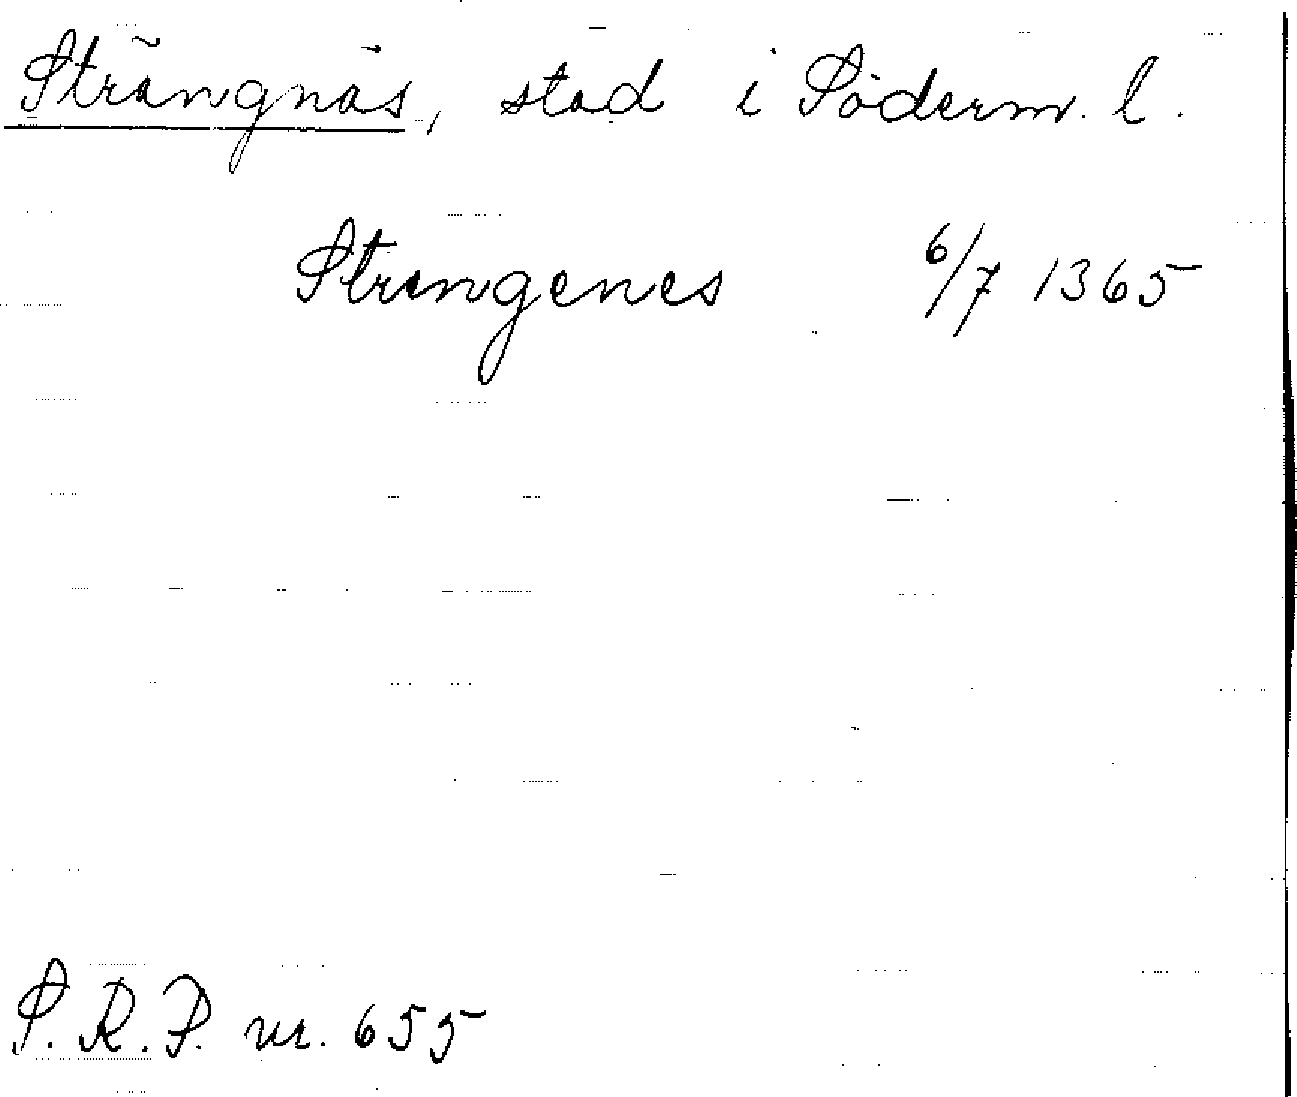 Strängnäs, stad i Söderm. l.
Strengenes 6/7 1365
S. R. P. nr. 655